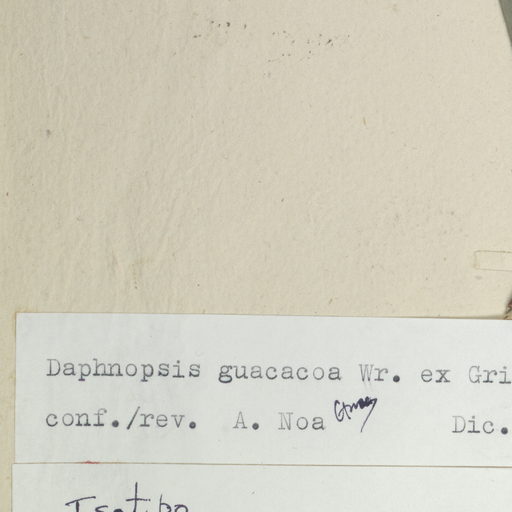 Daphnopsis guacacoa Wr. ex Gri
conf./rev. A. Noa Dic.
Isotipo